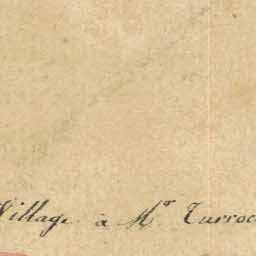 Village à Mr Turroc